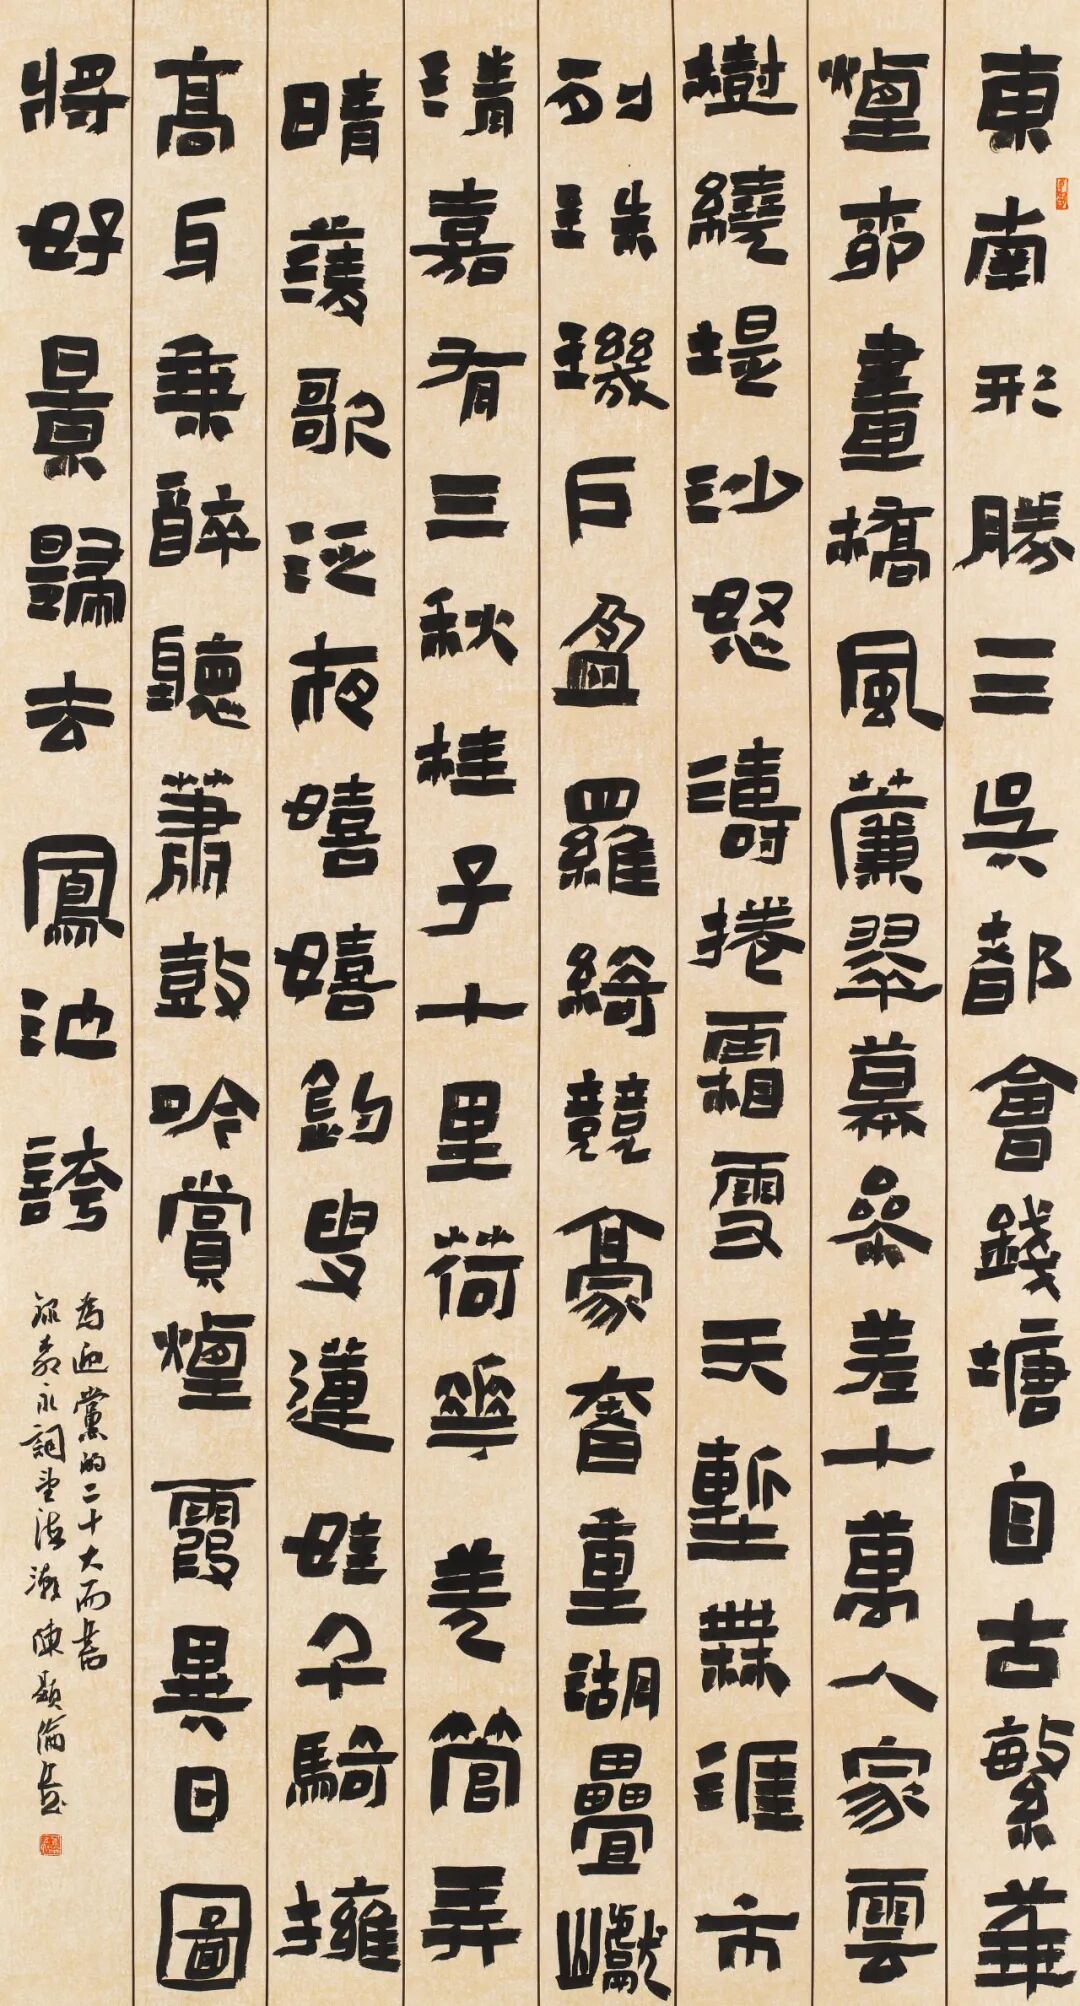 東南形勝三吳都會錢塘自古繁華
煙柳畫橋風簾翠幕參差十萬人家雲
樹繞堤沙怒濤捲霜雪天塹無涯市
列珠璣戶盈羅綺競豪奢重湖疊巘
清嘉有三秋桂子十里荷華羌管弄
晴菱歌泛夜嬉嬉釣叟蓮娃千騎擁
高牙乘醉聽簫鼓吟賞煙霞異日圖
將好景歸去鳳池誇
為迎黨的二十大而書
錄柳永詞望海潮陳顯倫書